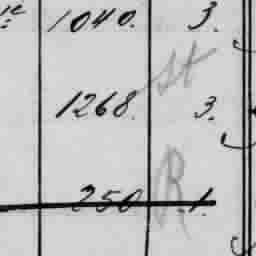 1040. 3.
St
1268. 3.
250 R 1.